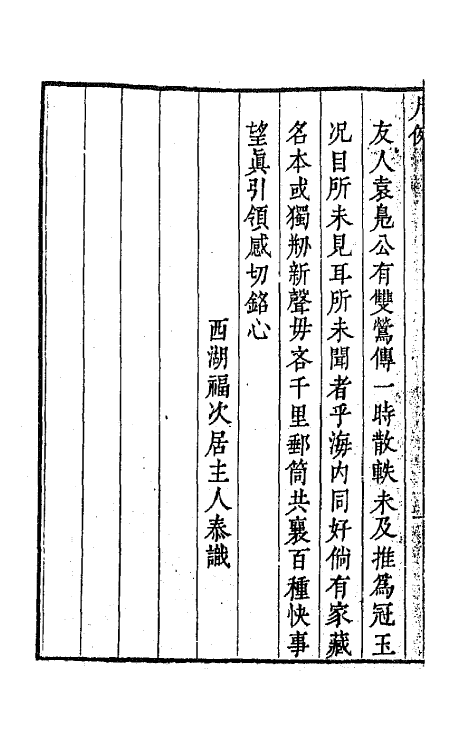 友人袁鳧公有雙鶯傳一時散軼未及推爲冠玉
况目所未見耳所未聞者乎海内同好倘有家藏
名本或獨剏新聲毋吝千里郵筒共襄百種快事
望眞引領感切銘心
西湖福次居主人泰識